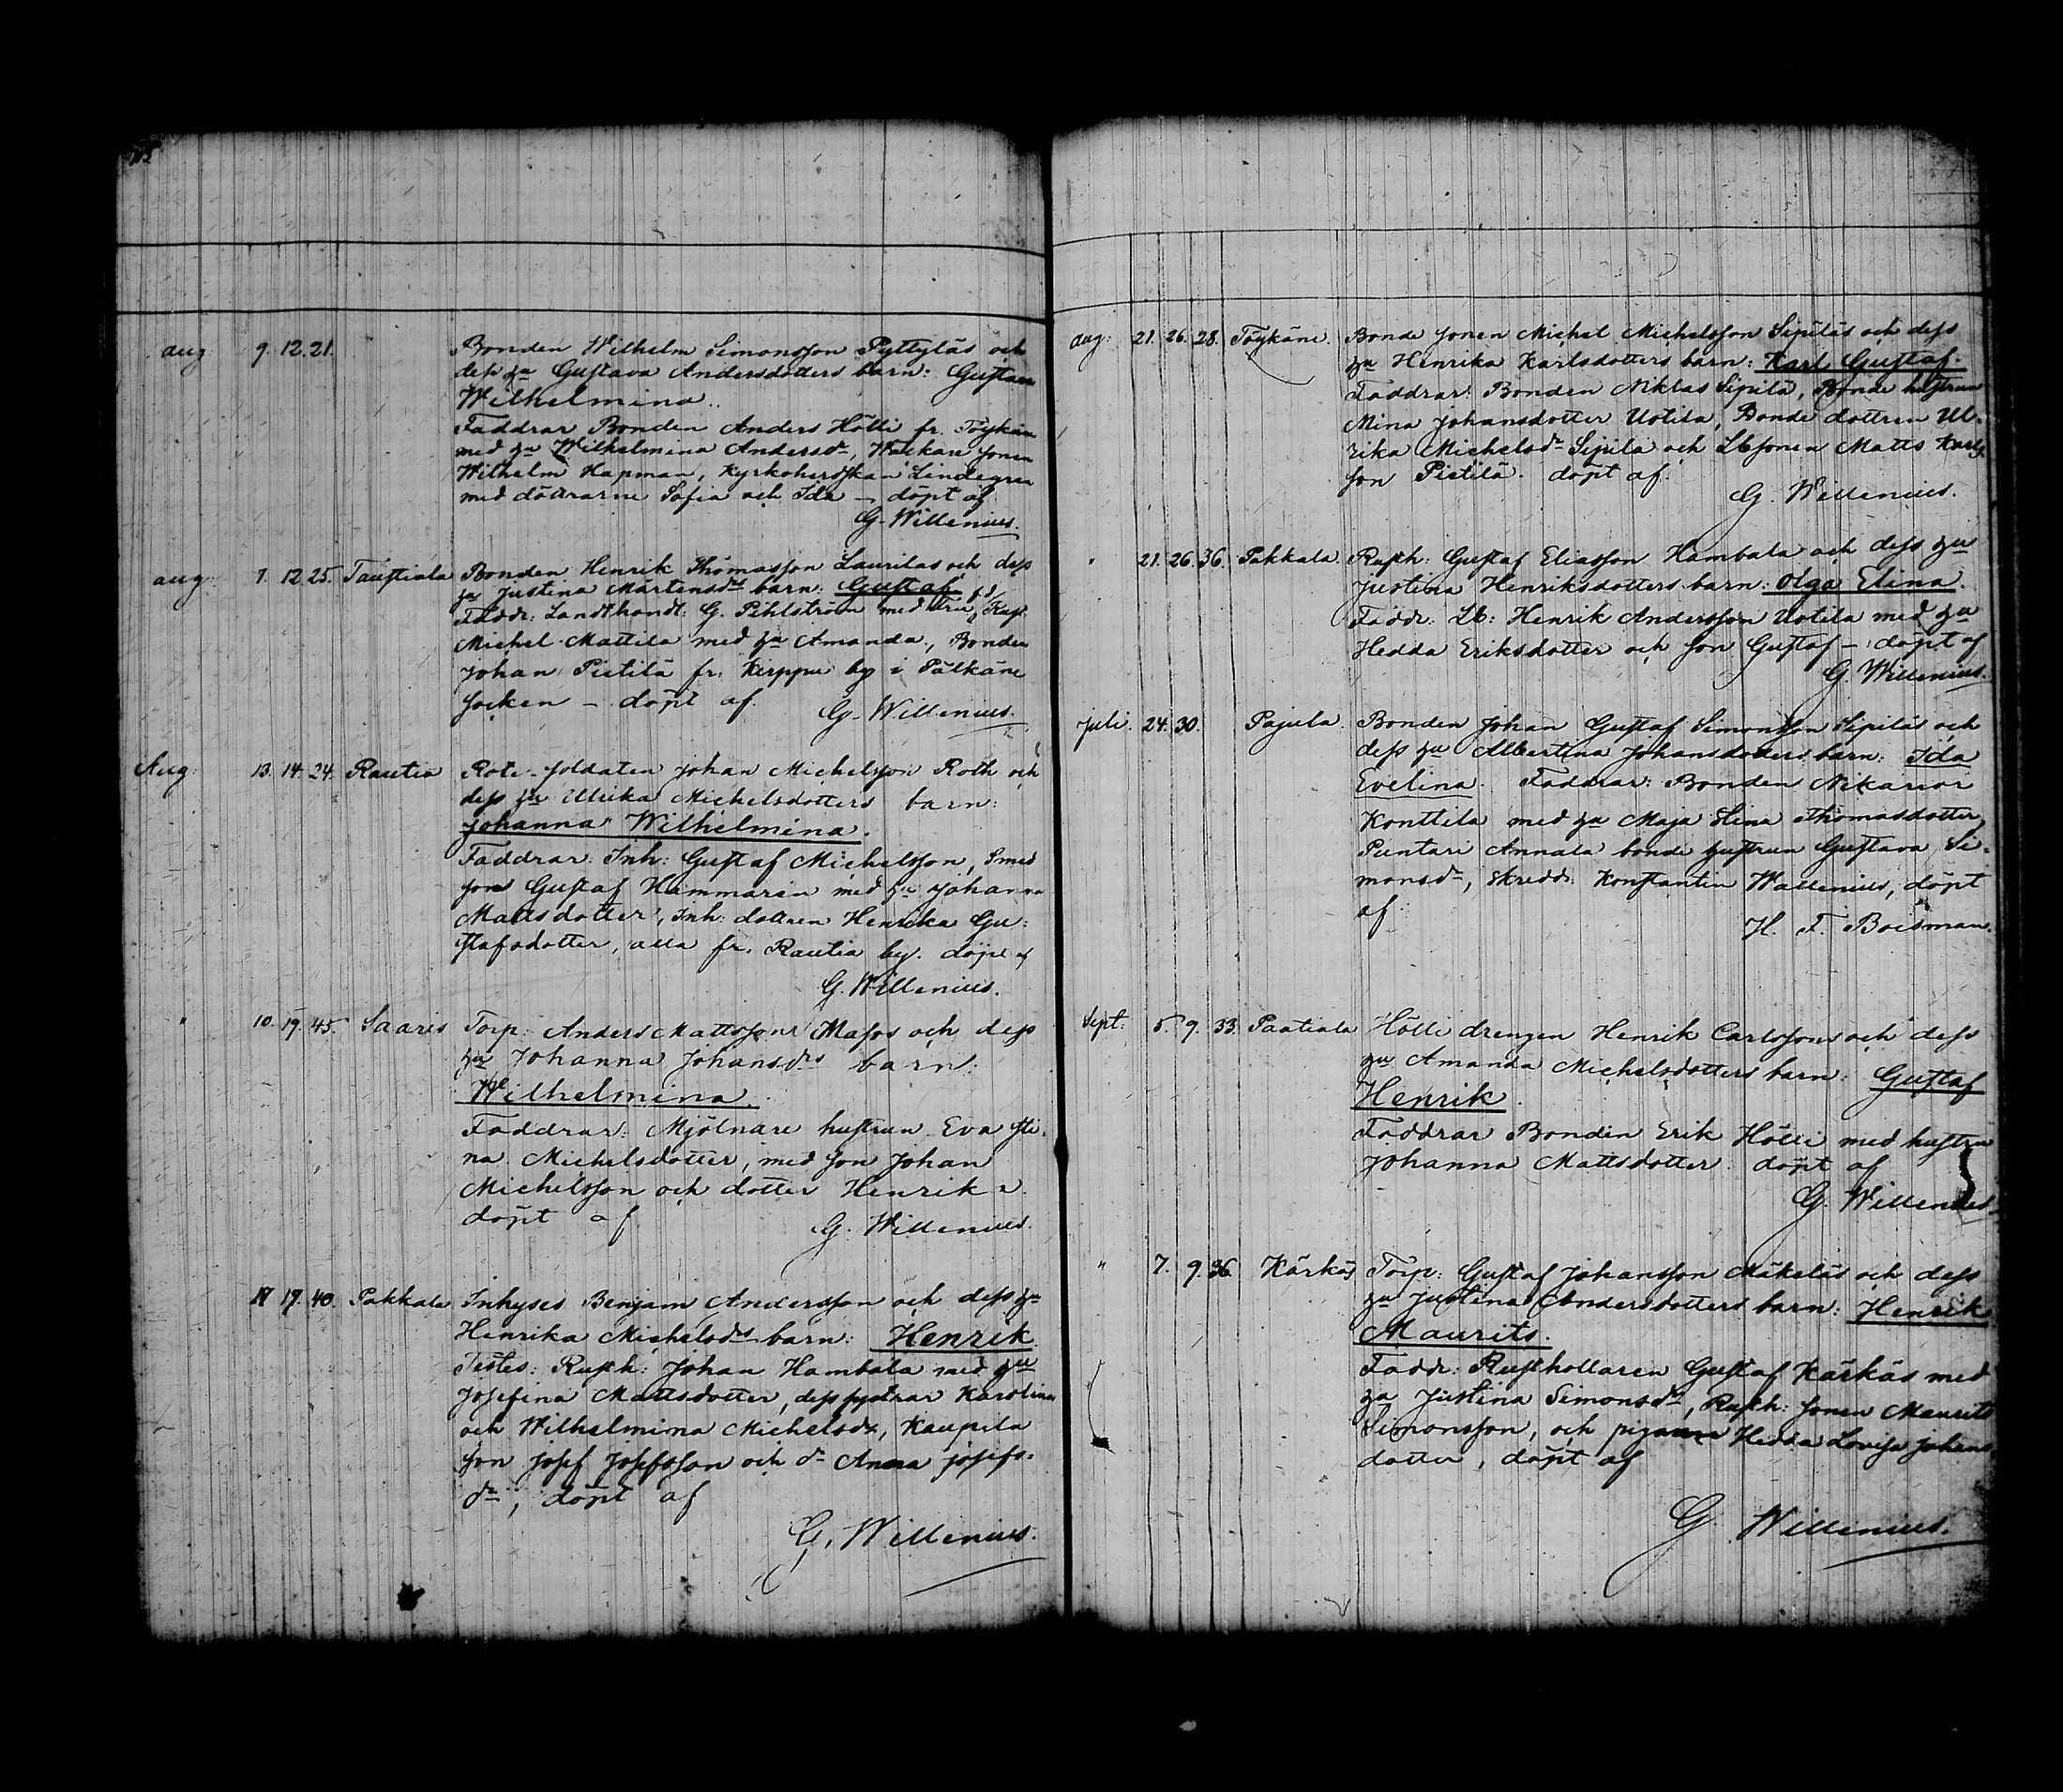 aug: 9. 12. 21. Bonden Wilhelm Simonsson Pyttyläs och
dess hu Gustava Andersdotters barn: Gustava
Wilhelmina.
Faddrar Bonden Anders Hölli fr. Töykäne
med hu Wilhelmina Andersdr, Wäckare sonen
Wilhelm Hapman, Kyrkoherdskan Lindegren
med döttrarne Sofia och Ida — döpt af
G. Willenius.
aug: 7. 12. 25. Taustiala Bonden Henrik Thomasson Laurilas och dess
hu Justina Mårtensdrs barn: Gustaf.
Faddr: Landthandl: G. Pihlström med Fru, Rusth.
Michel Mattila med hu Amanda, Bonden
Johan Pietilä fr. Kerppu by i Pälkäne
socken — döpt af
G. Willenius.
Aug: 13. 14. 24. Rautia Rote-soldaten Johan Michelsson Roth och
dess hu Ulrika Michelsdotters barn:
Johanna Wilhelmina.
Faddrar: Inh: Gustaf Michelsson, Smed
son Gustaf Hammarén med hu Johanna
Mattsdotter, Inh: dottren Henrika Gu-
stafsdotter, alla fr. Rautia by. döpt af
G. Willenius.
" 10. 19. 45. Saaris Torp: Anders Mattssons Masos och dess
hu Johanna Johansdrs barn:
Wilhelmina.
Faddrar: Mjölnare hustrun Eva Sti-
na Michelsdotter, med son Johan
Michelsson och dotter Henrika.
döpt af
G. Willenius.
17 19. 40. Pakkala Inhyses Benjam Andersson och dess hu
Henrika Michelsdrs barn: Henrik.
Testes: Rusth: Johan Hambala med hu
Josefina Mattsdotter, dess systrar Karolina
och Wilhelmina Michelsdr, Kaupila
son Josef Josefsson och dr Anna Josefs-
dr, döpt af
G. Willenius.
aug: 21. 26. 28. Töykäne. Bonde sonen Michel Michelsson Sipiläs och dess
hu Henrika Karlsdotters barn: Karl Gustaf.
Faddrar: Bonden Niklas Sipilä, Bonde hustrun
Mina Johansdotter Uotila, Bonde dottren Ul-
rika Michelsdr Sipilä och Lbsonen Matts Karls-
son Pietilä. döpt af:
G. Willenius.
" 21. 26. 36. Pakkala. Rusth: Gustaf Eliasson Hambala och dess hu
Justina Henriksdotters barn: Olga Elina.
Faddr: Lb: Henrik Andersson Uotila med hu
Hedda Eriksdotter och son Gustaf — döpt af
G. Willenius.
Juli. 24. 30. Pajula. Bonden Johan Gustaf Simonsson Sipiläs och
dess hu Albertina Johansdotters barn: Ida
Evelina. Faddrar: Bonden Nikanor
Konttila med hu Maja Stina Thomasdotter,
Puntari Annala bonde hustrun Gustava Si-
monsdr, Skredd: Konstantin Wallenius, döpt
af:
H. F. Boisman.
Sept: 5. 9. 33. Paatiala Hölli drengen Henrik Carlssons och dess
hu Amanda Michelsdotters barn: Gustaf
Henrik.
Faddrar Bonden Erik Hölli med hustru
Johanna Mattsdotter. döpt af
G. Willenius.
" 7. 9. 36. Kärkäs Torp: Gustaf Johansson Mäkeläs och dess
hu Justina Andersdotters barn: Henrik
Maurits.
Faddr: Rusthollaren Gustaf Kärkäs med
hu Justina Simonsdr, Rusth: sonen Maurits
Simonsson, och pigan Hedda Lovisa Johans-
dotter, döpt af
G. Willenius.